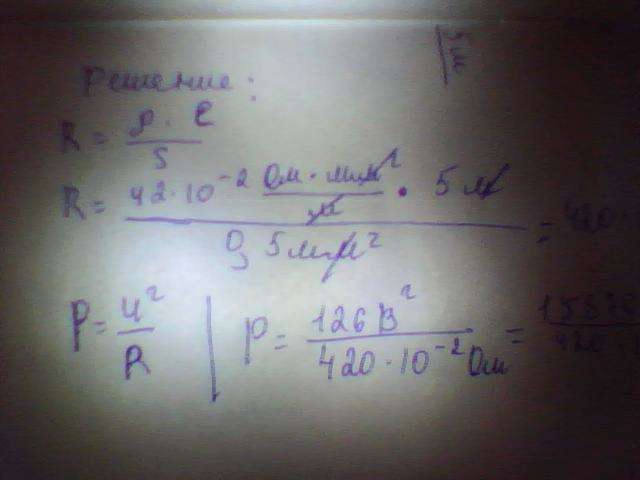 5м
Решение:
R = ρ · l / S
R = 42 · 10⁻² Ом · мм² / м · 5 м / 0,5 мм² = 420
P = U² / R | P = 126 В² / 420 · 10⁻² Ом =